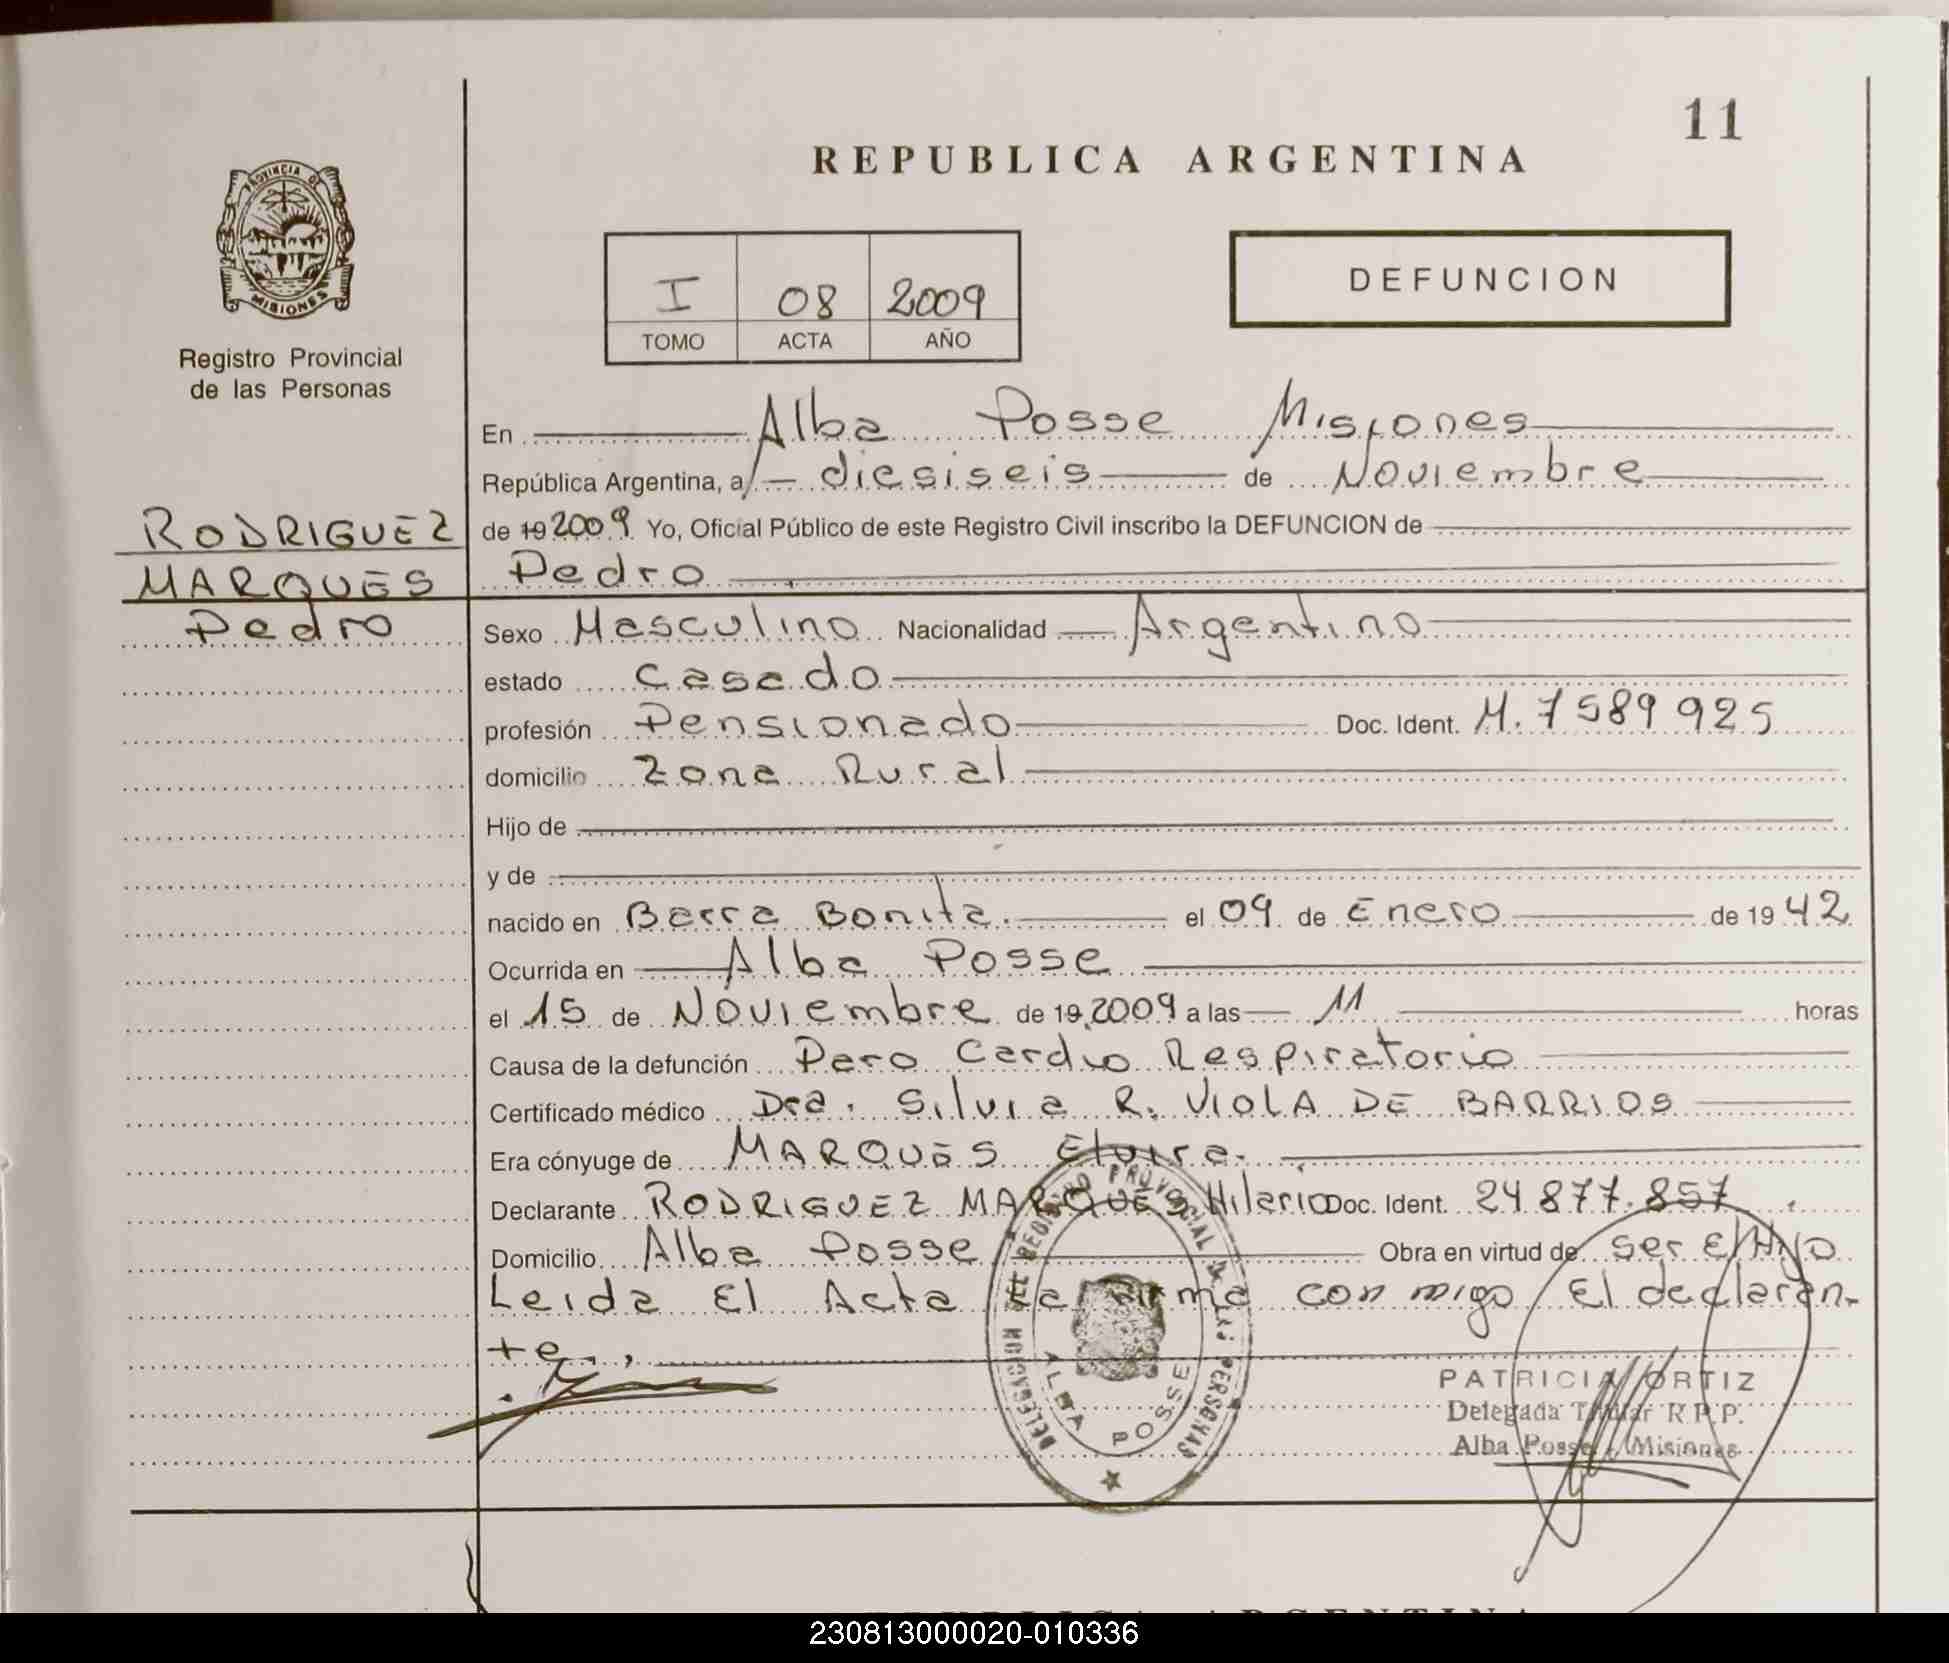 11
REPUBLICA ARGENTINA
PROVINCIA DE
MISIONES
Registro Provincial
de las Personas
I 08 2009
TOMO ACTA AÑO
DEFUNCION
En Alba Posse Misiones
República Argentina, a diesiseis de Noviembre
de 19 2009 Yo, Oficial Público de este Registro Civil inscribo la DEFUNCION de
RODRIGUEZ
MARQUES
Pedro
Pedro
Sexo Masculino Nacionalidad Argentino
estado Casado
profesión Pensionado Doc. Ident. M. 7589925
domicilio Zona Rural
Hijo de
y de
nacido en Barra Bonita. el 09 de Enero de 19 42
Ocurrida en Alba Posse
el 15 de Noviembre de 19 2009 a las 11 horas
Causa de la defunción Paro Cardio Respiratorio
Certificado médico Dra. Silvia R. VIOLA DE BARRIOS
Era cónyuge de MARQUES Elvira.
Declarante RODRIGUEZ MARQUES Hilario Doc. Ident. 24877.857
Domicilio Alba Posse Obra en virtud de ser El Hijo
Leida El Acta la firma con migo El declaran-
te.,
DELEGACION DEL REGISTRO PROVINCIAL DE LAS PERSONAS
ALBA POSSE
PATRICIA ORTIZ
Delegada Titular R.P.P.
Alba Posse - Misiones
230813000020-010336